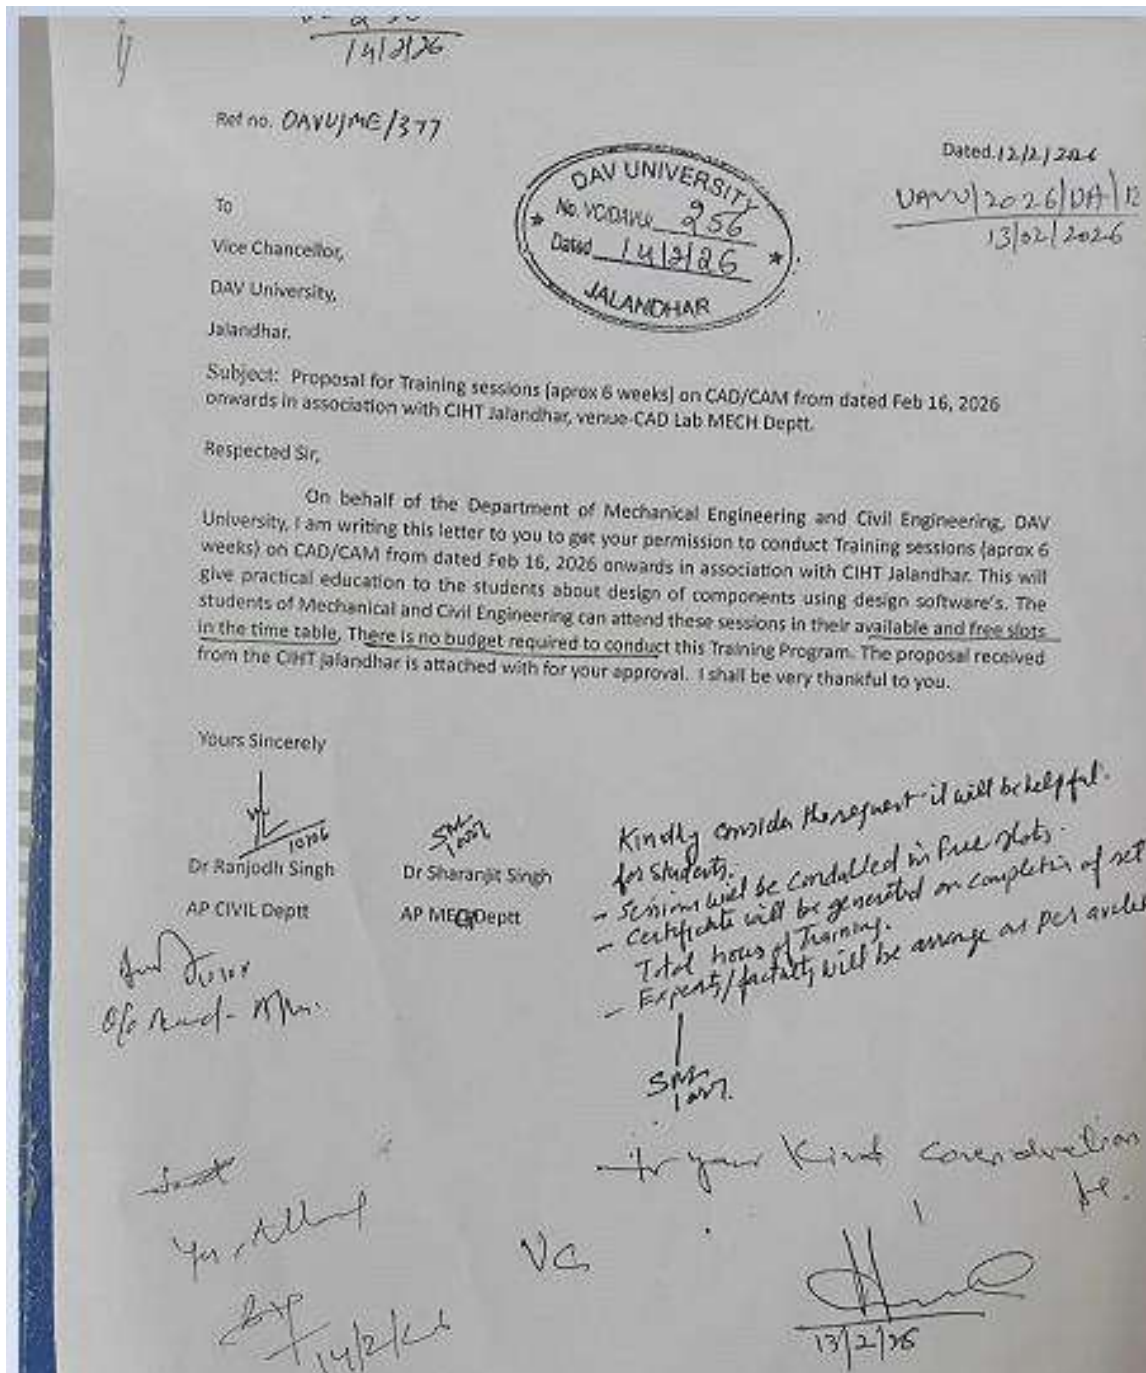 14/2/26
Ref no. DAVU/ME/377
Dated.12/2/2026
DAVU/2026/DA/12
13/02/2026
DAV UNIVERSITY
No. VC/DAVU/ 256
Dated 14/2/26
JALANDHAR
To
Vice Chancellor,
DAV University,
Jalandhar.
Subject: Proposal for Training sessions (aprox 6 weeks) on CAD/CAM from dated Feb 16, 2026
onwards in association with CIHT Jalandhar, venue-CAD Lab MECH Deptt.
Respected Sir,
On behalf of the Department of Mechanical Engineering and Civil Engineering, DAV
University, I am writing this letter to you to get your permission to conduct Training sessions (aprox 6
weeks) on CAD/CAM from dated Feb 16, 2026 onwards in association with CIHT Jalandhar. This will
give practical education to the students about design of components using design software's. The
students of Mechanical and Civil Engineering can attend these sessions in their available and free slots
in the time table. There is no budget required to conduct this Training Program. The proposal received
from the CIHT Jalandhar is attached with for your approval. I shall be very thankful to you.
Yours Sincerely
Dr Ranjodh Singh
AP CIVIL Deptt
Dr Sharanjit Singh
AP MECH Deptt
Kindly consider the request it will be helpful.
for students.
- Sessions will be conducted in free slots.
- Certificate will be generated on completion of set
Total hours of Training.
- Experts/faculty will be arrange as per
for your Kind consideration
pl.
VC
13/2/26
14/2/26